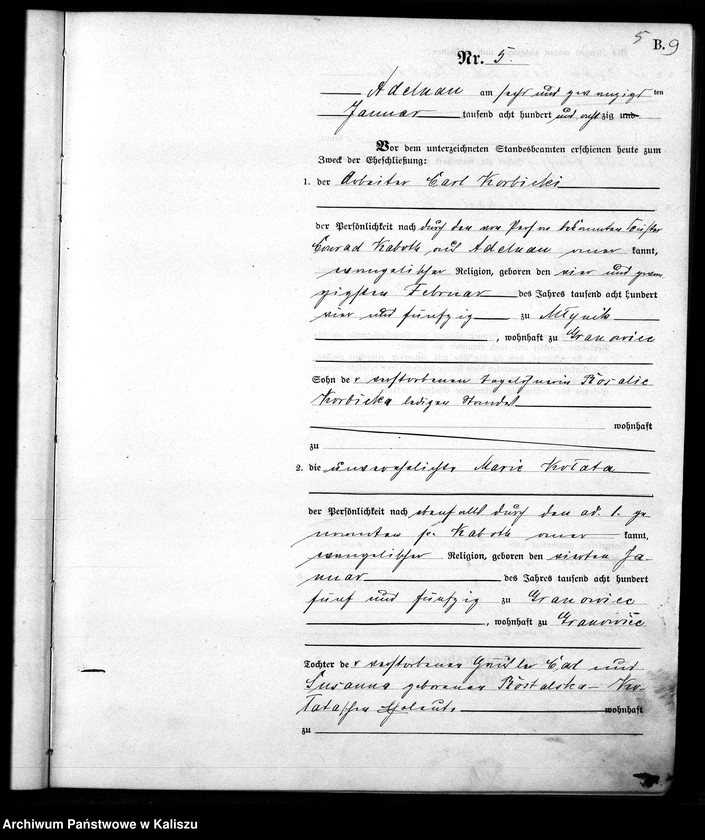 5 B. 9
Nr. 5.
Adelnau am sechs und zwanzigsten
Januar tausend acht hundert und achtzig und
Vor dem unterzeichneten Standesbeamten erschienen heute zum
Zweck der Eheschließung:
1. der Arbeiter Carl Korbicki
der Persönlichkeit nach durch den von Person bekannten
Conrad Kaboth aus Adelnau aner kannt,
evangelischer Religion, geboren den vier und zwan-
zigsten Februar des Jahres tausend acht hundert
vier und fünfzig zu Młynik
, wohnhaft zu Granowiec
Sohn der verstorbenen Tagelöhnerin Rosalie
Korbicka ledigen Standes
wohnhaft
zu
2. die unverehelichte Marie Kołata
der Persönlichkeit nach ebenfalls durch den ad. 1. ge-
nannten p. Kaboth aner kannt,
evangelischer Religion, geboren den vierten Ja-
nuar des Jahres tausend acht hundert
fünf und fünfzig zu Granowiec
, wohnhaft zu Granowiec
Tochter der verstorbenen Carl und
Susanna geborenen Kostalska- Ko-
łata'schen Eheleute wohnhaft
zu
Archiwum Państwowe w Kaliszu